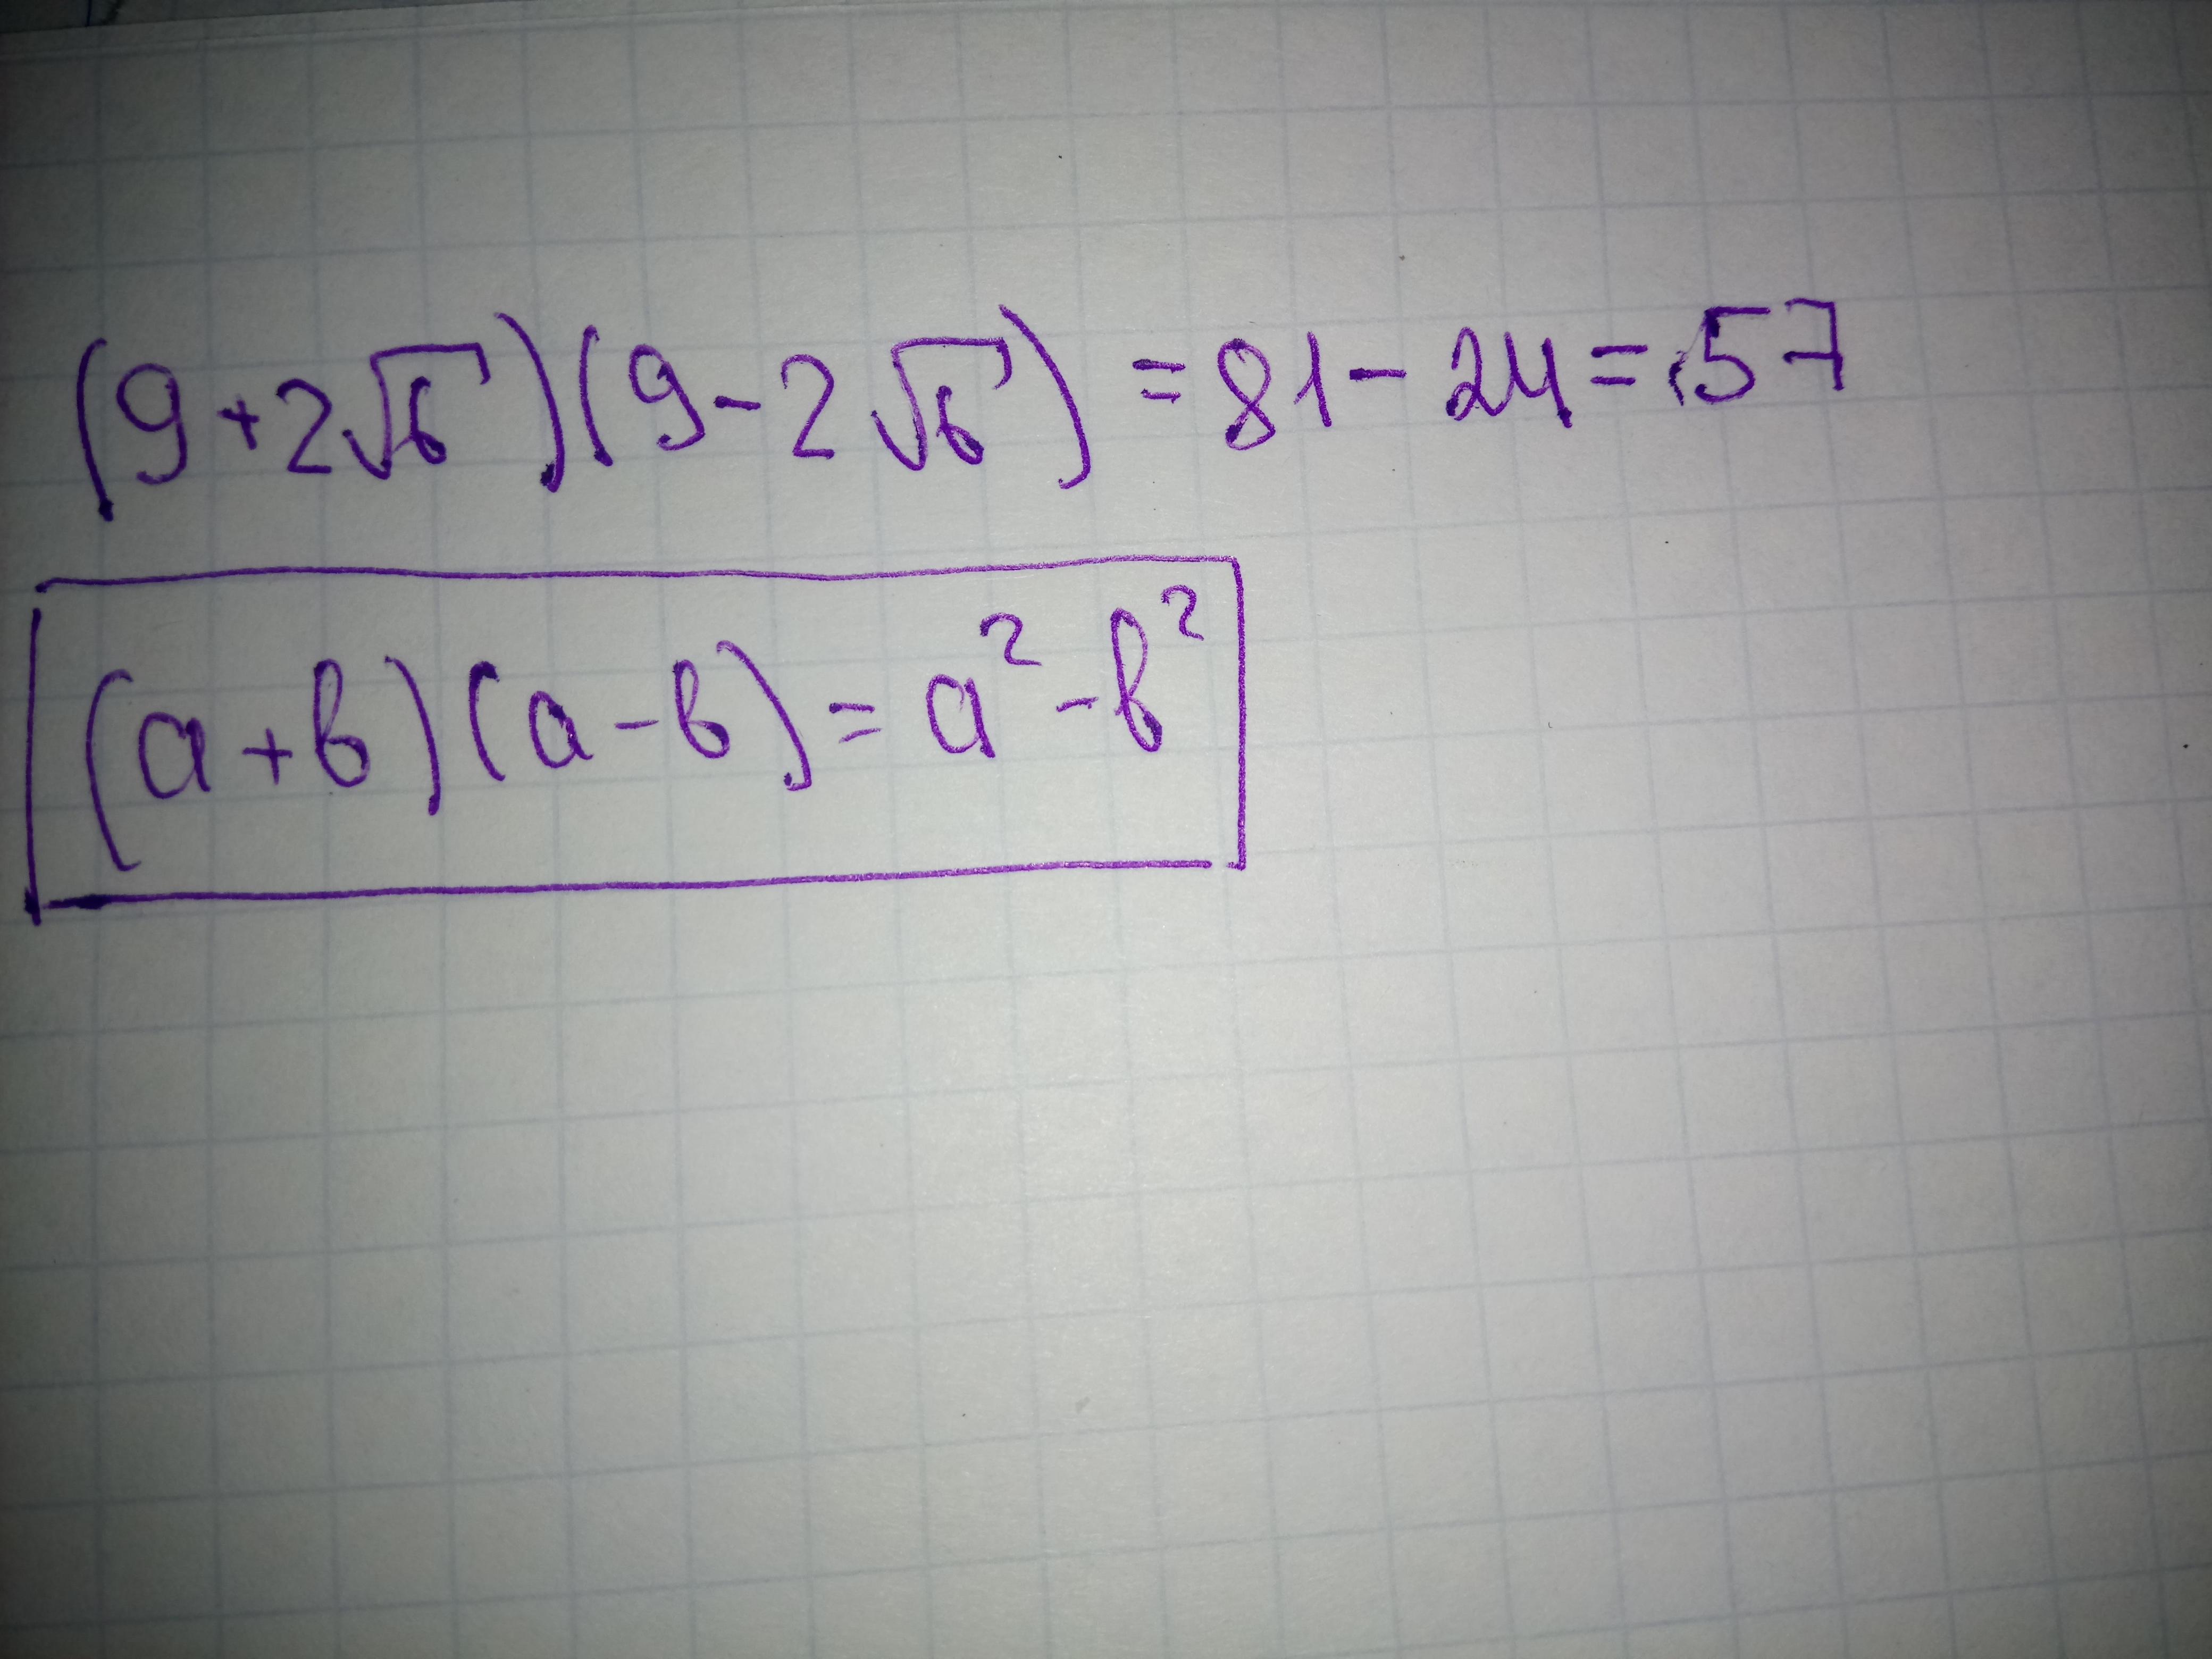 (9+2√6)(9-2√6)=81-24=57
(a+b)(a-b)=a²-b²